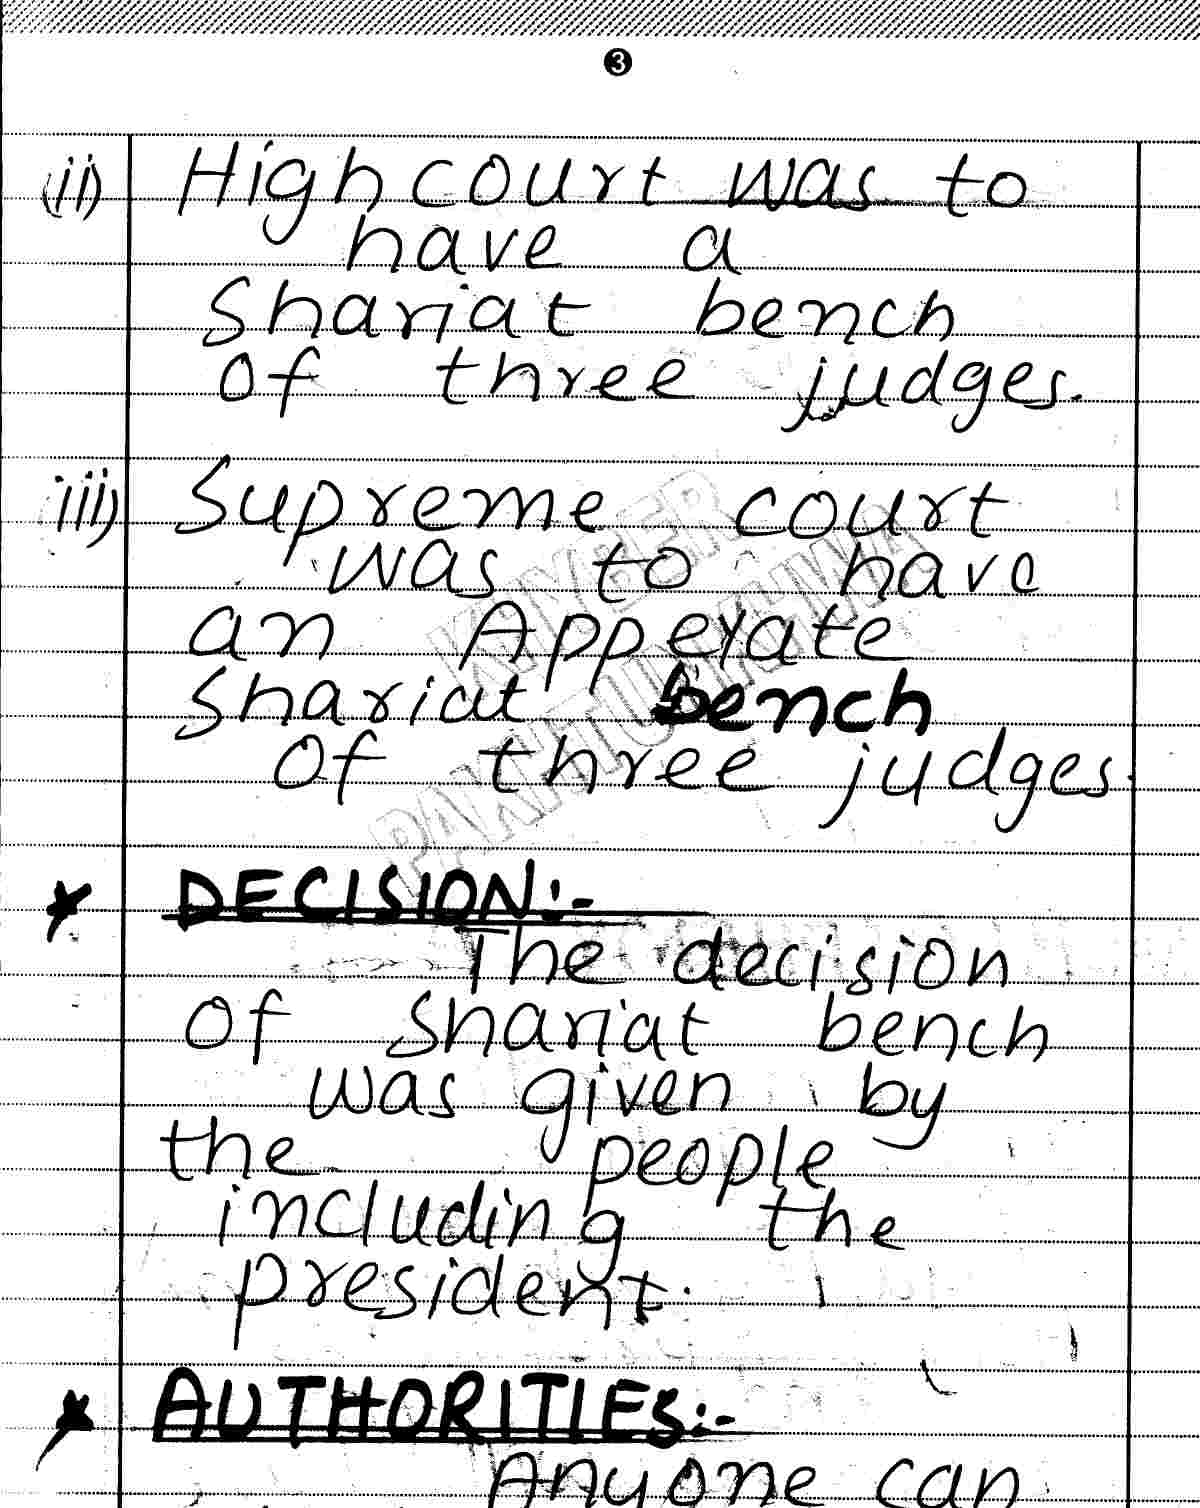 3
(ii) Highcourt was to
have a
Shariat bench
of three judges.
iii) Supreme court
was to have
an Appelate
shariat bench
of three judges.
KHYBER
PAKHTUNKHWA
DECISION:-
The decision
of shariat bench
was given by
the people
including the
president.
AUTHORITIES:-
Anyone can